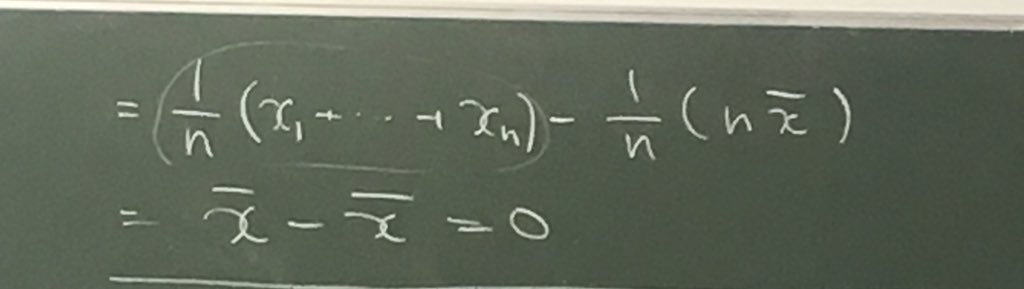 = 1/n (x₁ + ⋯ + xₙ) − 1/n (n x̄)
= x̄ − x̄ = 0